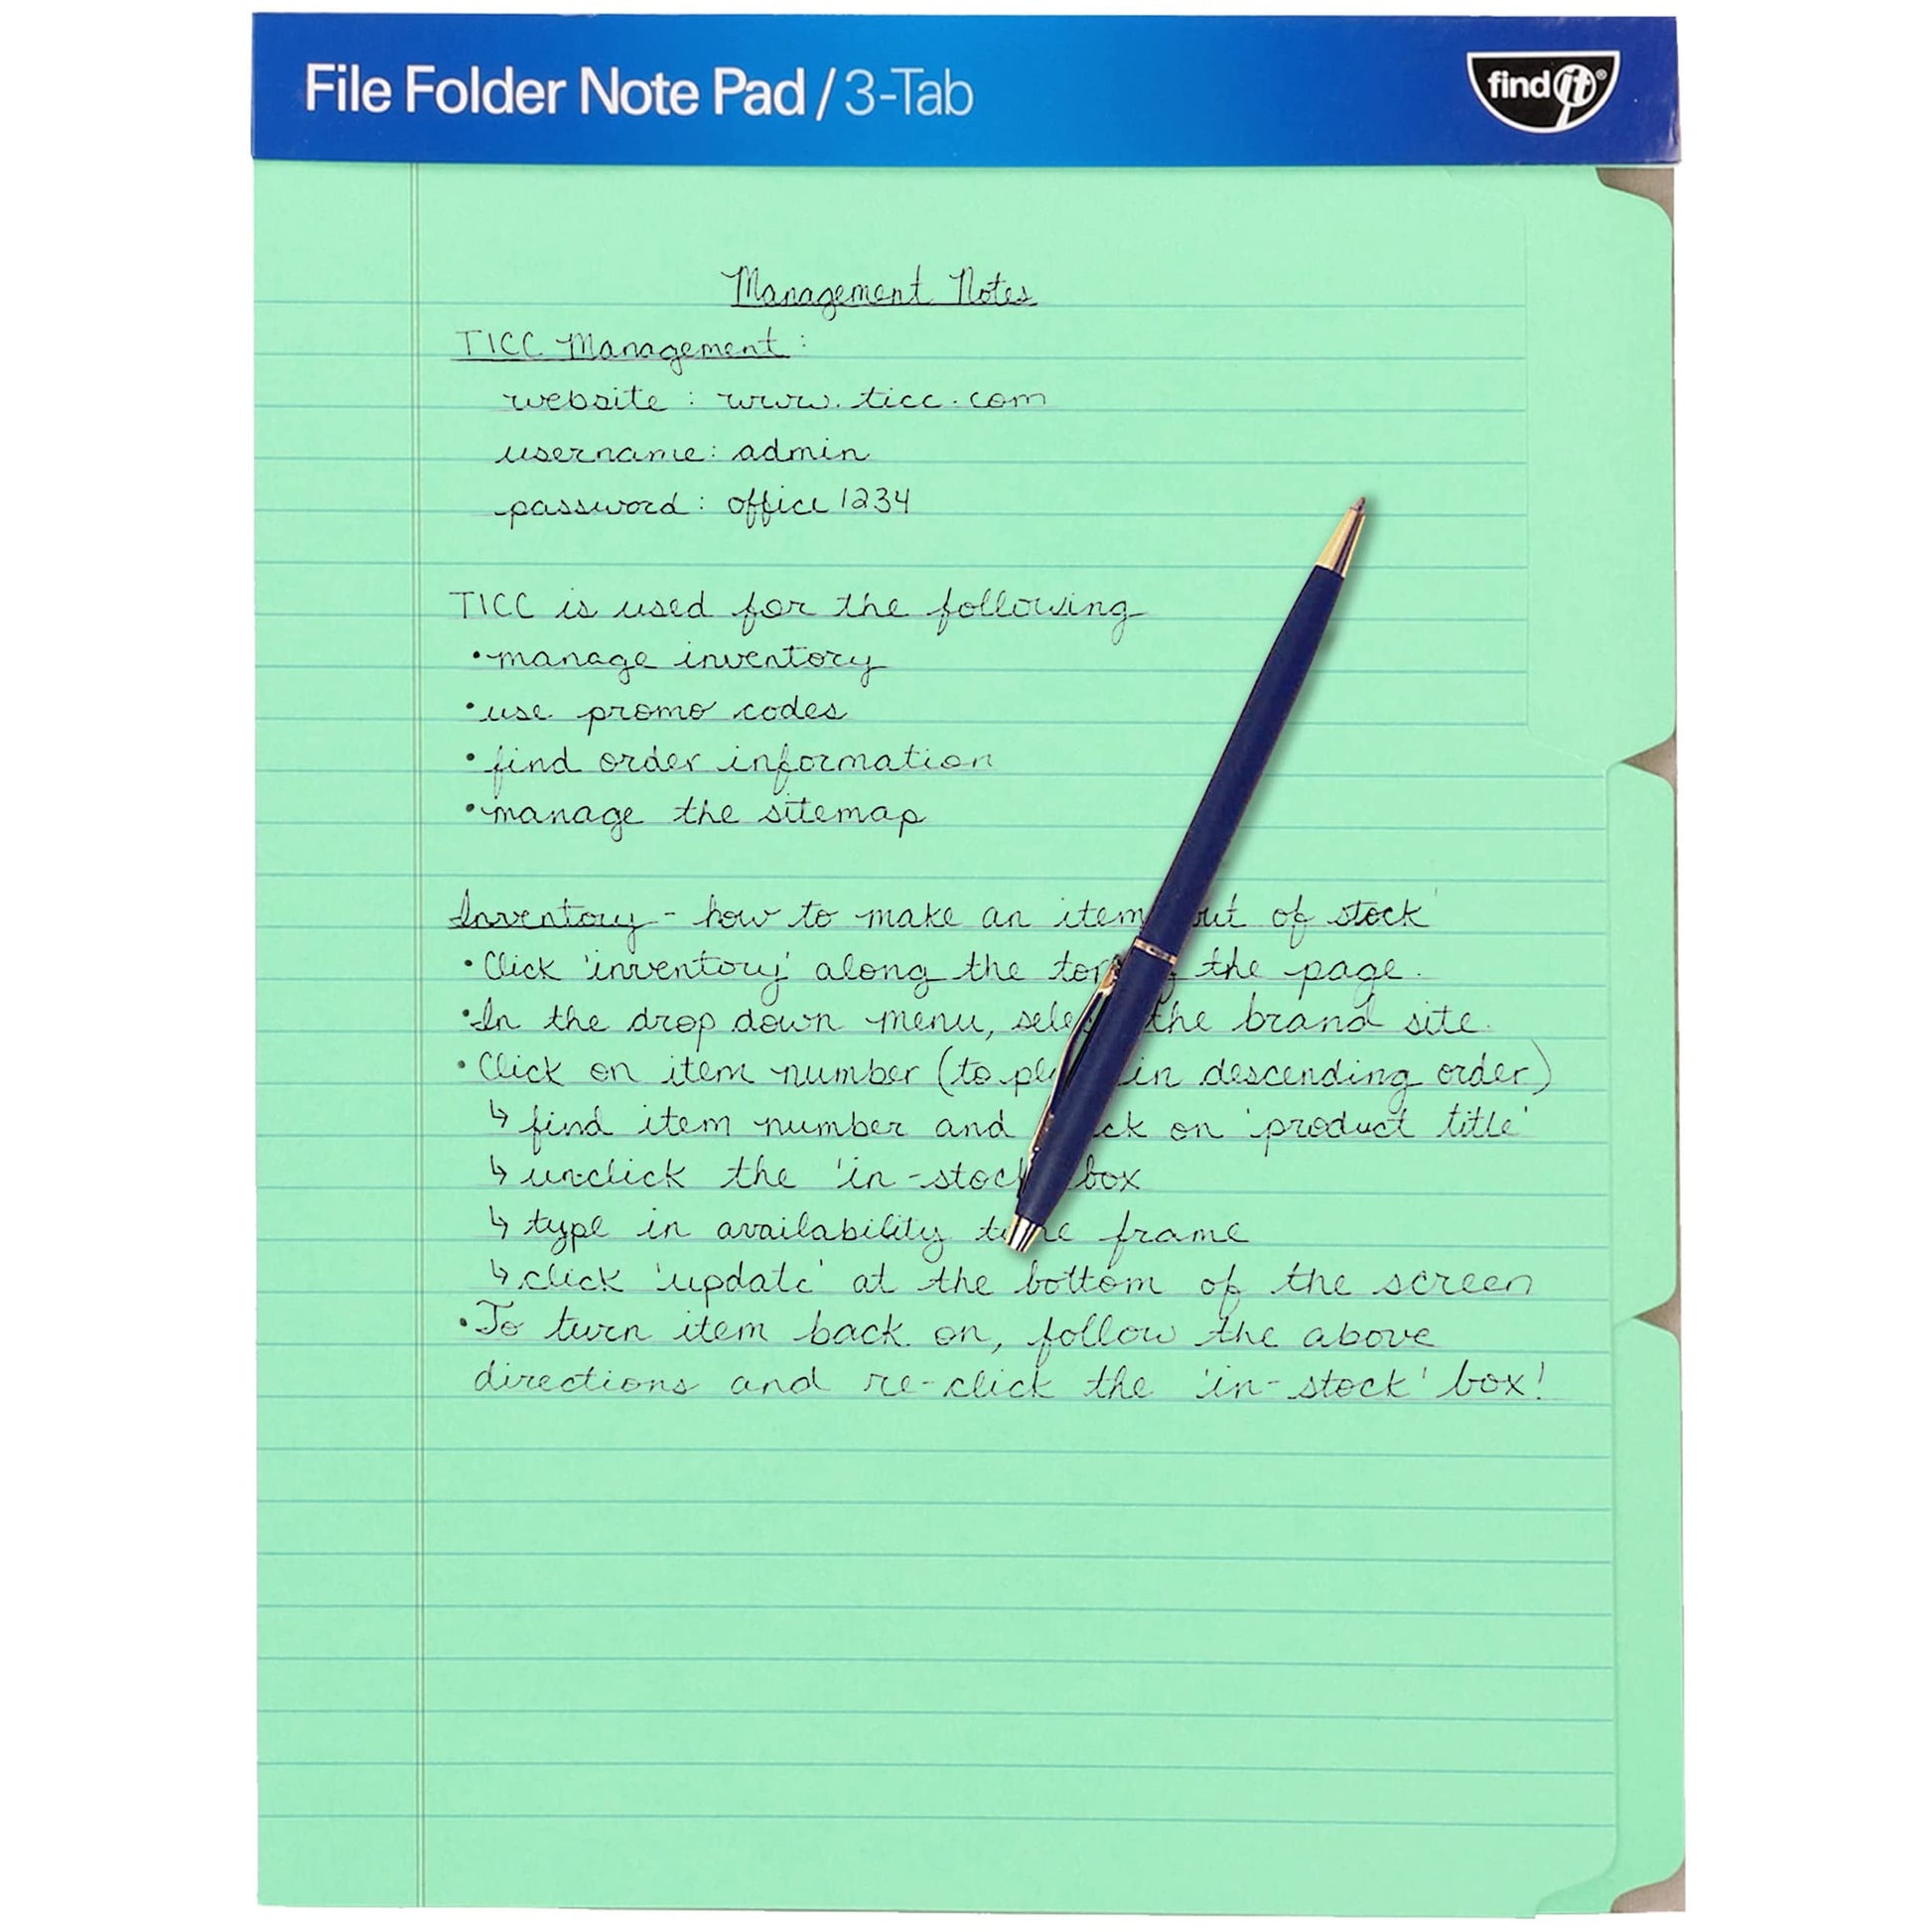 File Folder Note Pad / 3-Tab
find it®
Management Notes
TICC Management:
website: www.ticc.com
username: admin
password: office1234
TICC is used for the following
•manage inventory
•use promo codes
•find order information
•manage the sitemap
Inventory - how to make an item of stock
•Click 'inventory' along the the page.
•In the drop down menu, the brand site.
•Click on item number (to in descending order)
↳find item number and on 'product title'
↳unclick the 'in-stock box
↳type in availability frame
↳click 'update' at the bottom of the screen
•To turn item back on, follow the above
directions and re-click the 'in-stock' box!